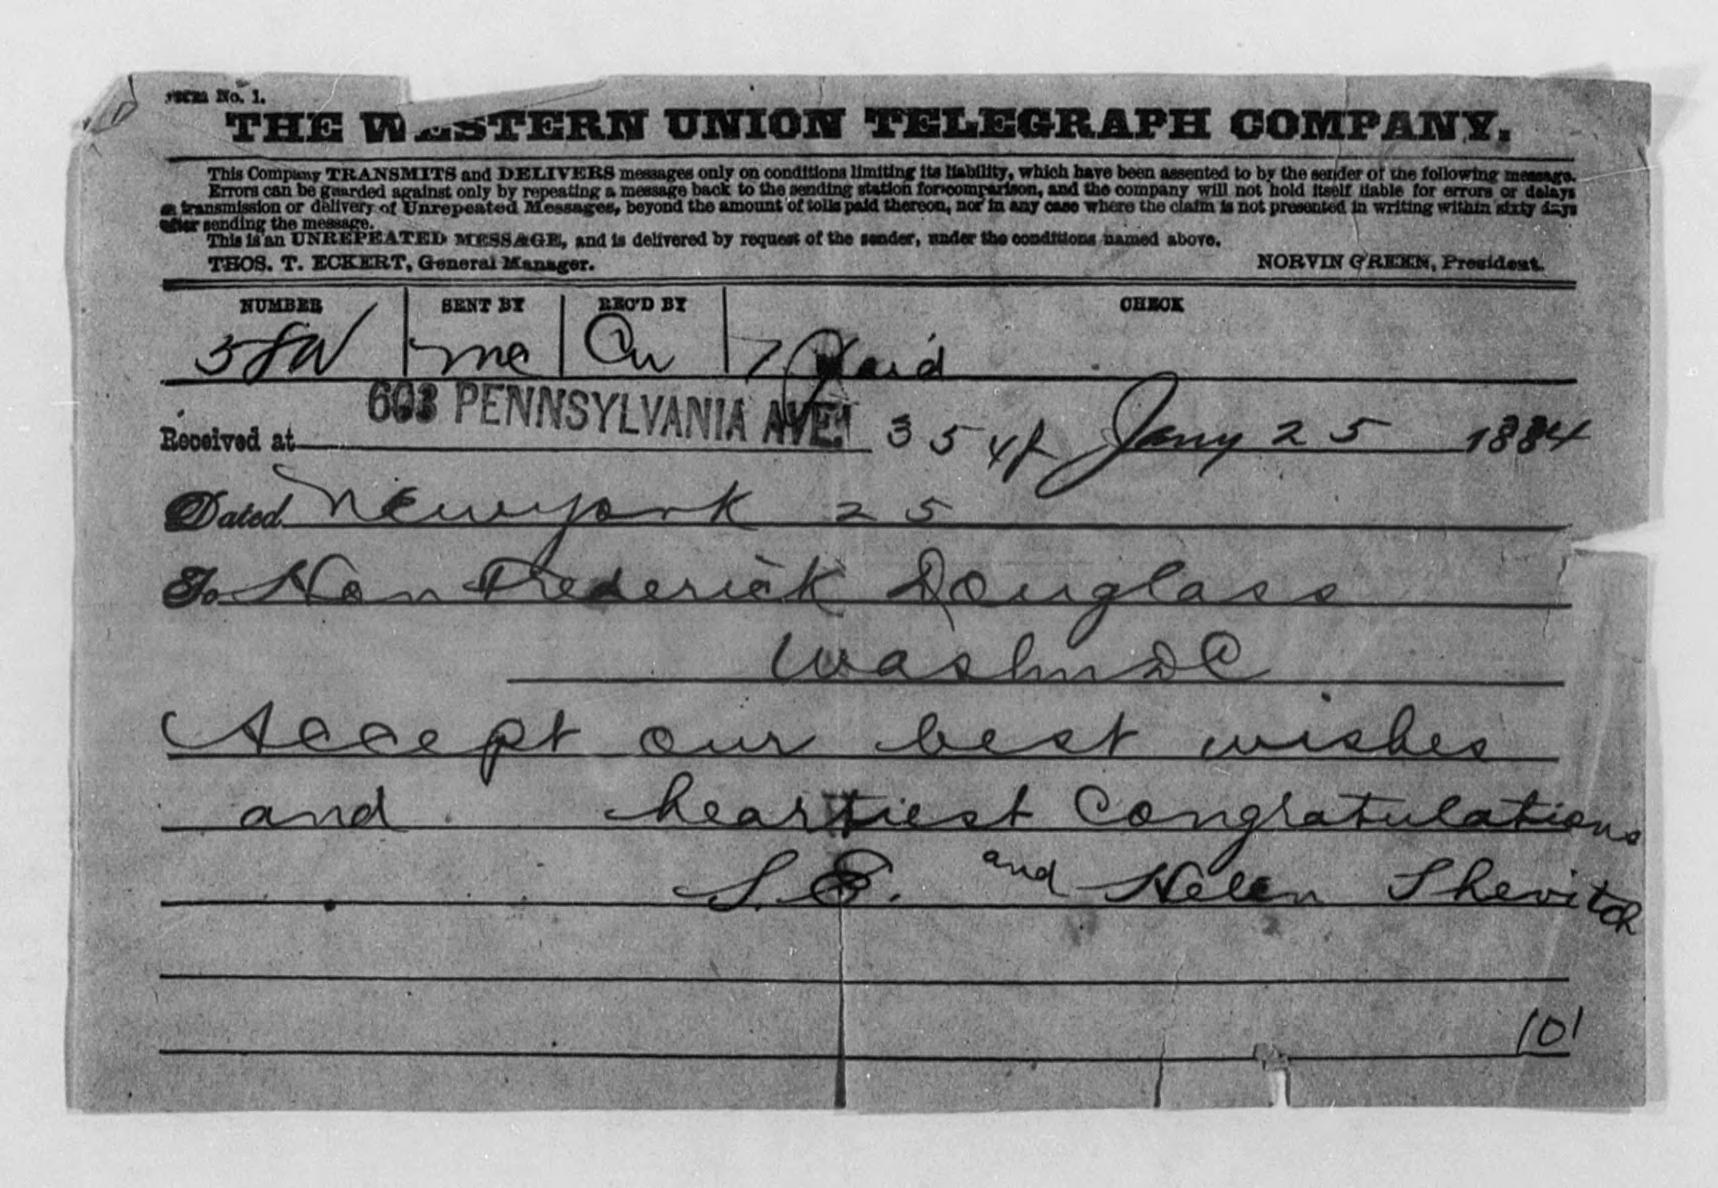 Form No. 1.
THE WESTERN UNION TELEGRAPH COMPANY.
This Company TRANSMITS and DELIVERS messages only on conditions limiting its liability, which have been assented to by the sender of the following message.
Errors can be guarded against only by repeating a message back to the sending station for comparison, and the company will not hold itself liable for errors or delays
in transmission or delivery of Unrepeated Messages, beyond the amount of tolls paid thereon, nor in any case where the claim is not presented in writing within sixty days
after sending the message.
This is an UNREPEATED MESSAGE, and is delivered by request of the sender, under the conditions named above.
THOS. T. ECKERT, General Manager. NORVIN GREEN, President.
NUMBER SENT BY REC'D BY CHECK
7 Paid
603 PENNSYLVANIA AVE.
Received at 3 5 Jany 25 1884
Dated Newyork 25
To Hon Frederick Douglass
Washn DC
Accept our best wishes
and heartiest Congratulations
S. E. and Helen Shevitch
101